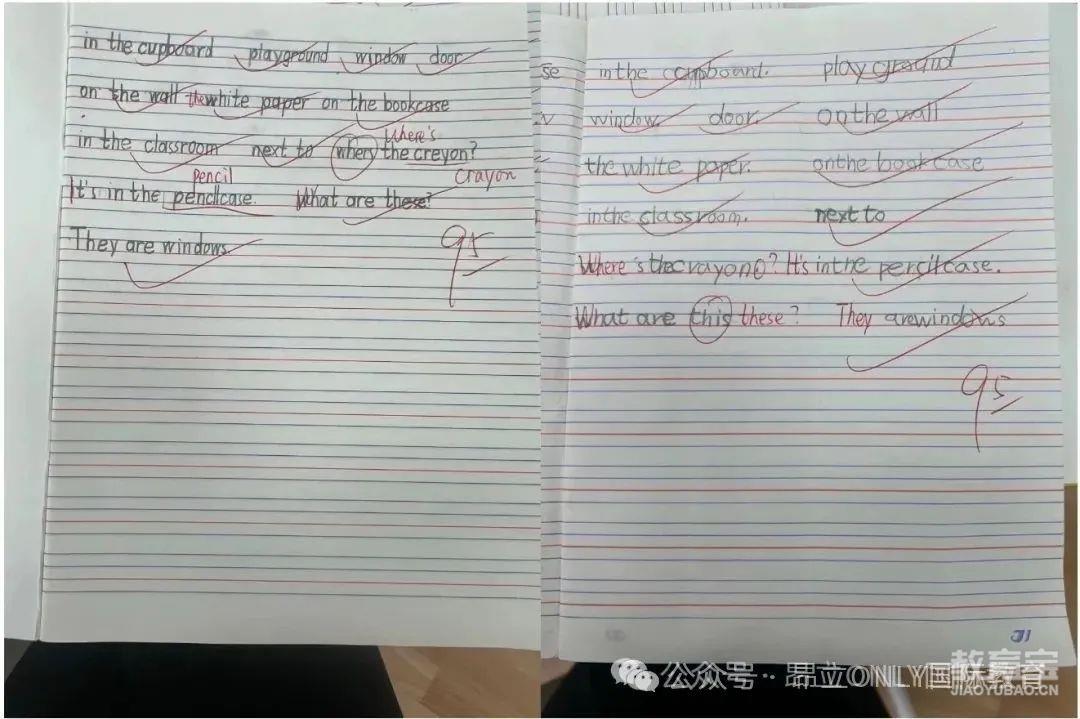 in the cupboard playground window door
on the wall the white paper on the bookcase
Where's
in the classroom next to whery the creyon?
pencil crayon
It's in the penclicase. What are these?
They are windows.
95
se in the cupboard. playground
window. door. on the wall
the white paper. on the bookcase
in the classroom. next to
Where's the crayon? It's in the pencilcase.
What are this these? They are windows
95
公众号·昂立ONLY国际教育
教育宝
JIAOYUBAO.CN